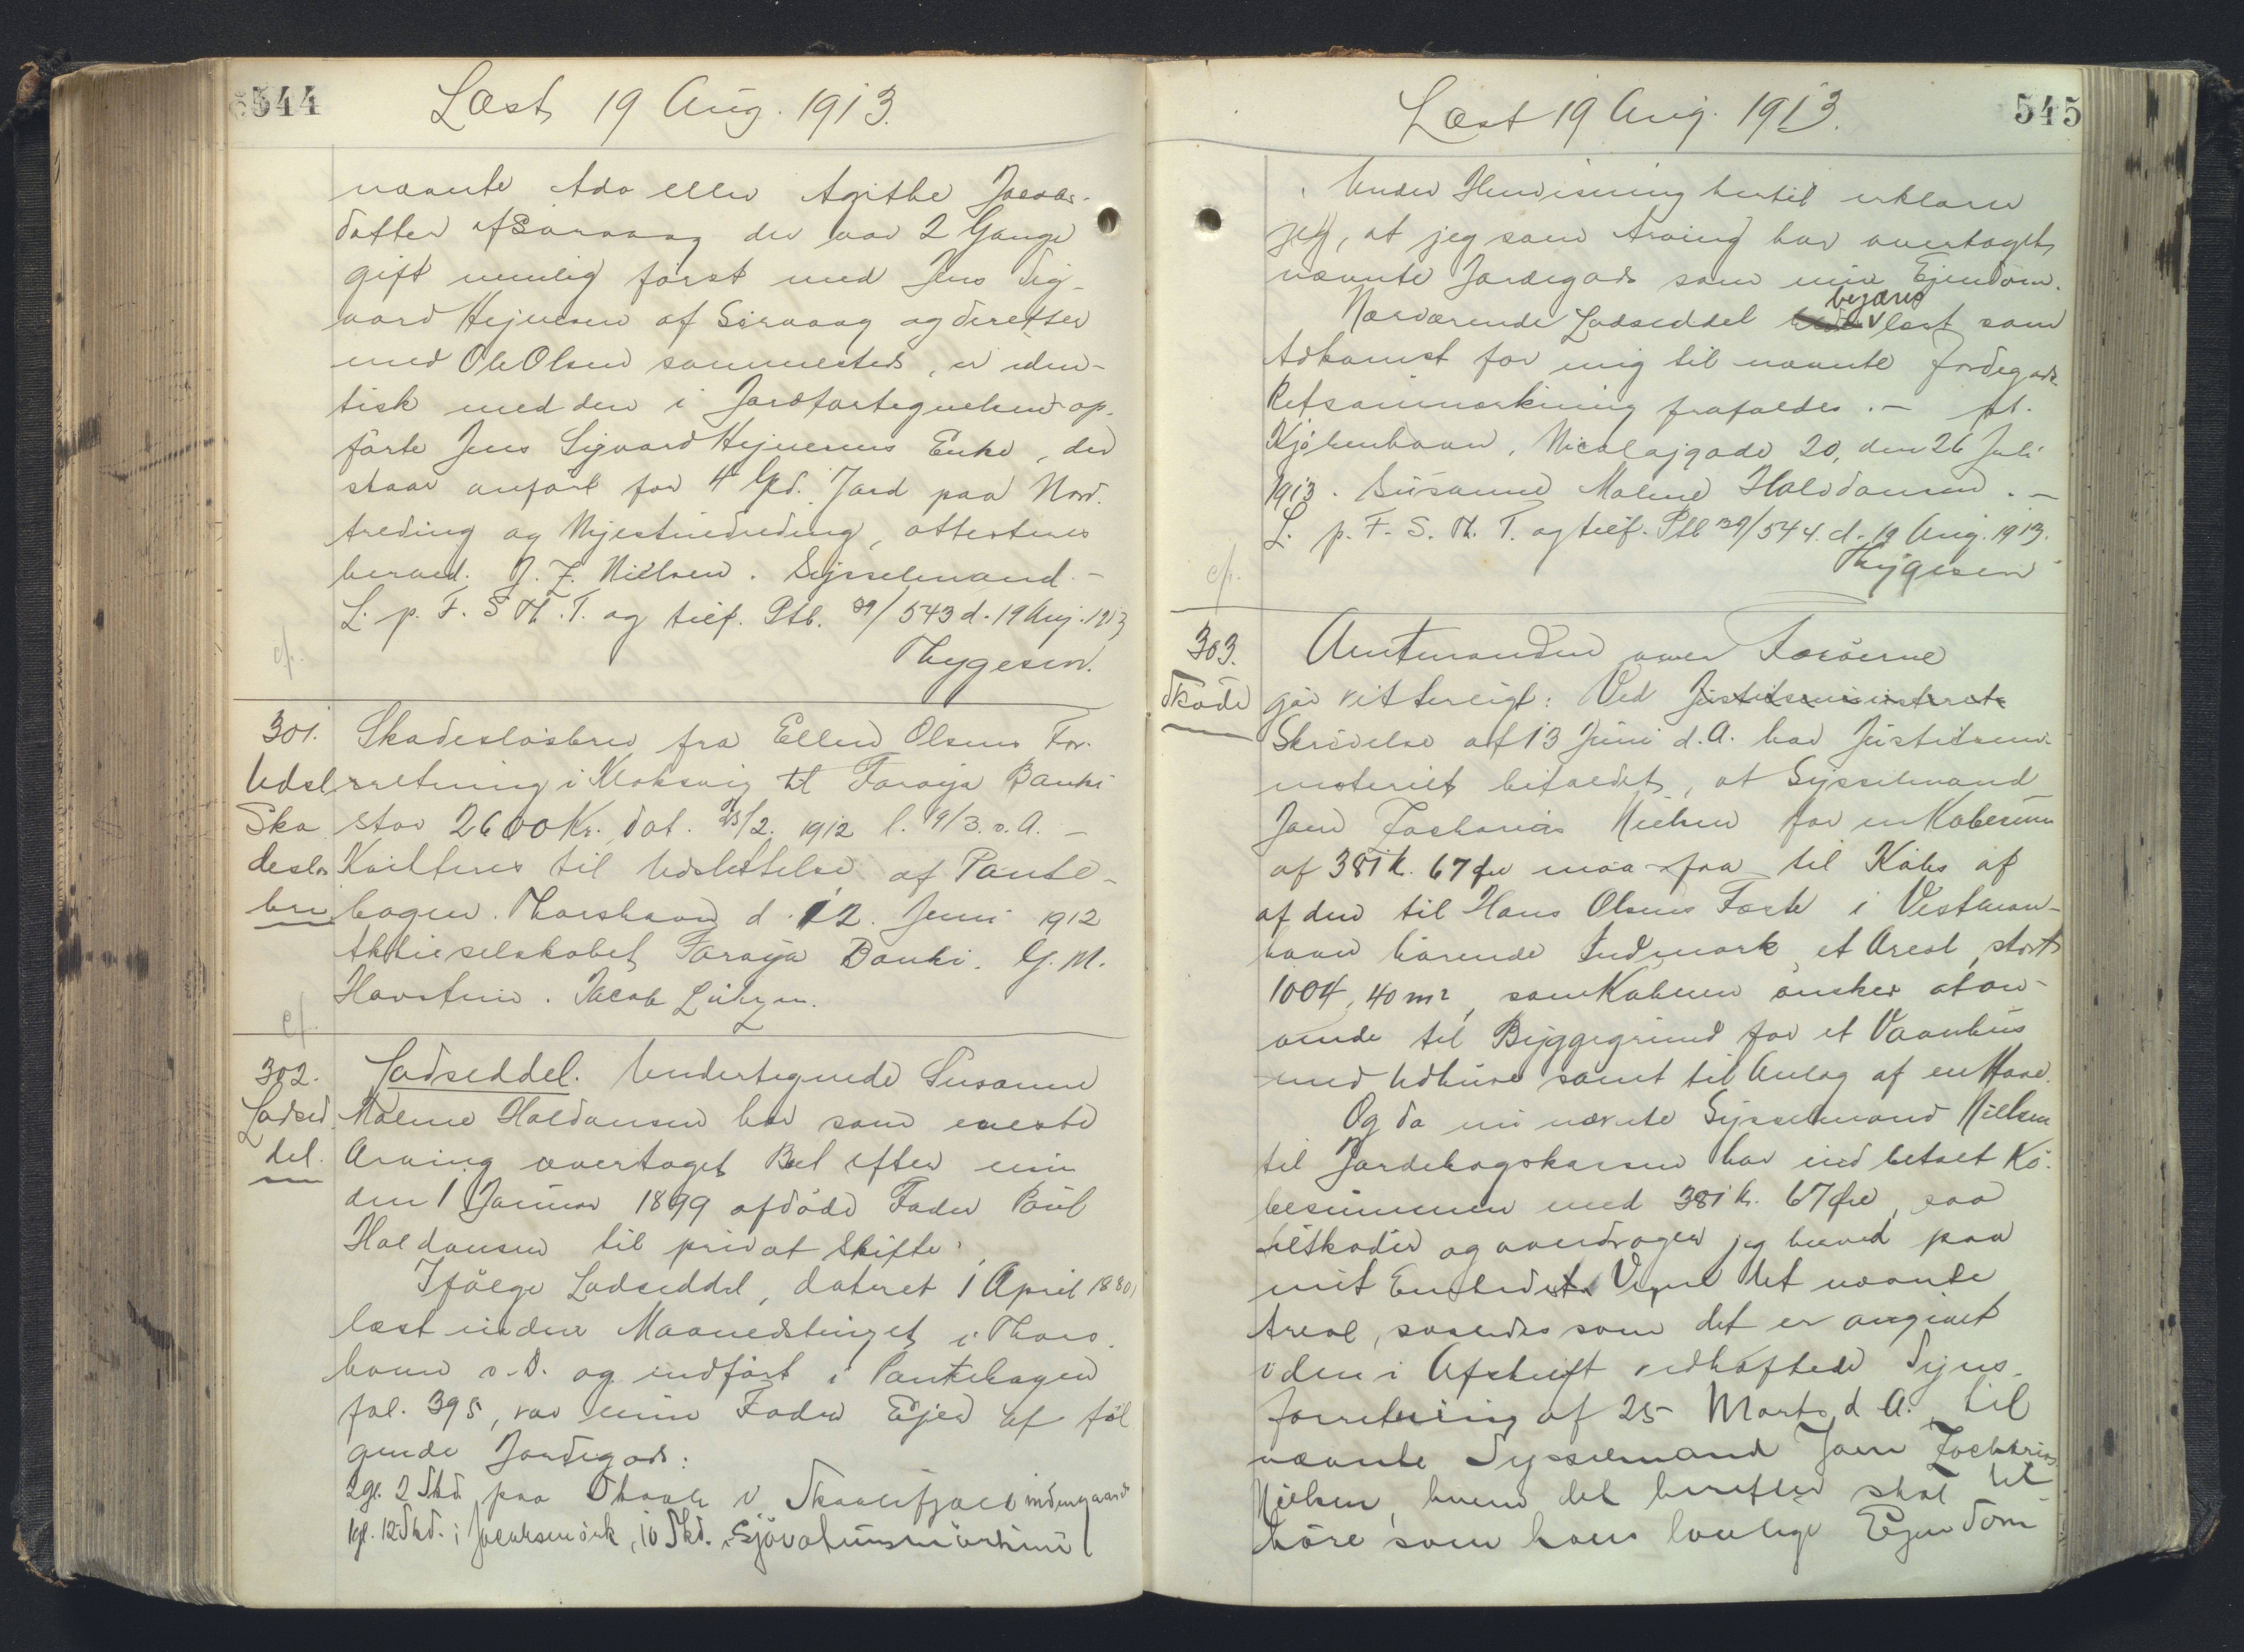 544
Læst 19 Aug. 1913.
nævnte Ada eller Agithe Jacobs-
datter af Sørvaag der var 2 Gange
gift nemlig først med Jens Sig-
vard Hejnesen af Sørvaag og derefter
med Ole Olsen sammesteds, er iden-
tisk med den i Jordfortegnelsen op-
førte Jens Sigvard Hejnesens Enke, der
staar anført for 4 Gyd. Jord paa Nord-
treding og Mjestnedreding, attesteres
herved. J. Z. Nielsen. Sysselmand. -
L. p. F. S. Th. T. og tilf. Ptb. 39/543 d. 19 Aug. 1913
Thygesen.
cf.
301. Skadesløsbrev fra Ellen Olsens For-
Udsl rretning i Klaksvig til Føroya Banki
Ska stor 2600 Kr. dat. 25/2. 1912 l. 19/3. s. A. -
desløs Kvitteres til Udslettelse af Pante-
brev bogen. Thorshavn d. 12. Juni 1912
Aktieselskabet Føroya Banki. G. M.
Havstein. Jacob Lützen.
cf.
302. Lodseddel. Undertegnede Susanne
Lodsed Malene Haldansen har som eneste
del. Arving overtaget Boet efter min
den 1 Januar 1899 afdøde Fader Poul
Haldansen til privat Skifte.
Ifølge Lodseddel, dateret 1 April 1880,
læst inden Maanedstinget i Thors-
havn s. D. og indført i Pantebogen
fol. 395, var min Fader Ejer af føl
gende Jordegods:
2 gl. 2 Skd. paa Skaale i Skaalefjord indengaards
1 gl. 12 Skd. i Jacobsenørk, 10 Skd.
545
Læst 19 Aug. 1913.
Under Henvisning hertil erklærer
jeg, at jeg som Arving har overtaget
nævnte Jordegods som min Ejendom.
Nærværende Lodseddel begæres læst som
Adkomst for mig til nævnte Jordegods.
Retsanmærkning frafaldes. - pt.
Kjøbenhavn, Nicolajgade 20, den 26 Juli
1913. Susanne Malene Haldansen. -
L. p. F. S. Th. T. og tilf. Ptb 39/544. d. 19 Aug. 1913.
Thygesen
cf.
303. Amtmanden over Færøerne
Skøde gør vitterligt: Ved Justitsministeriets
Skrivelse af 13 Juni d. A. har Justitsmi-
nisteriet bifaldet, at Sysselmand
Joen Zacharias Nielsen for en Købesum
af 381 k. 67 Øre maa faa til Købs af
af den til Hans Olsens Fæste i Vestman-
havn hørende Indmark, et Areal, stort
1004,40 m², som Køberen ønsker at an-
vende til Byggegrund for et Vaanhus
med Udhuse samt til Anlæg af en Have.
Og da nu nævnte Sysselmand Nielsen
til Jordebogskassen har indbetalt Kø-
besummen med 381 k. 67 Øre, saa
tilskøder og overdrager jeg herved paa
mit Embedes Vegne det nævnte
Areal, saaledes som det er angivet
i den i Afskrift vedhæftede Syns-
forretning af 25 Marts d A. til
nævnte Sysselmand Joen Zacharias
Nielsen, hvem det herefter skal til
høre som hans lovlige Ejendom